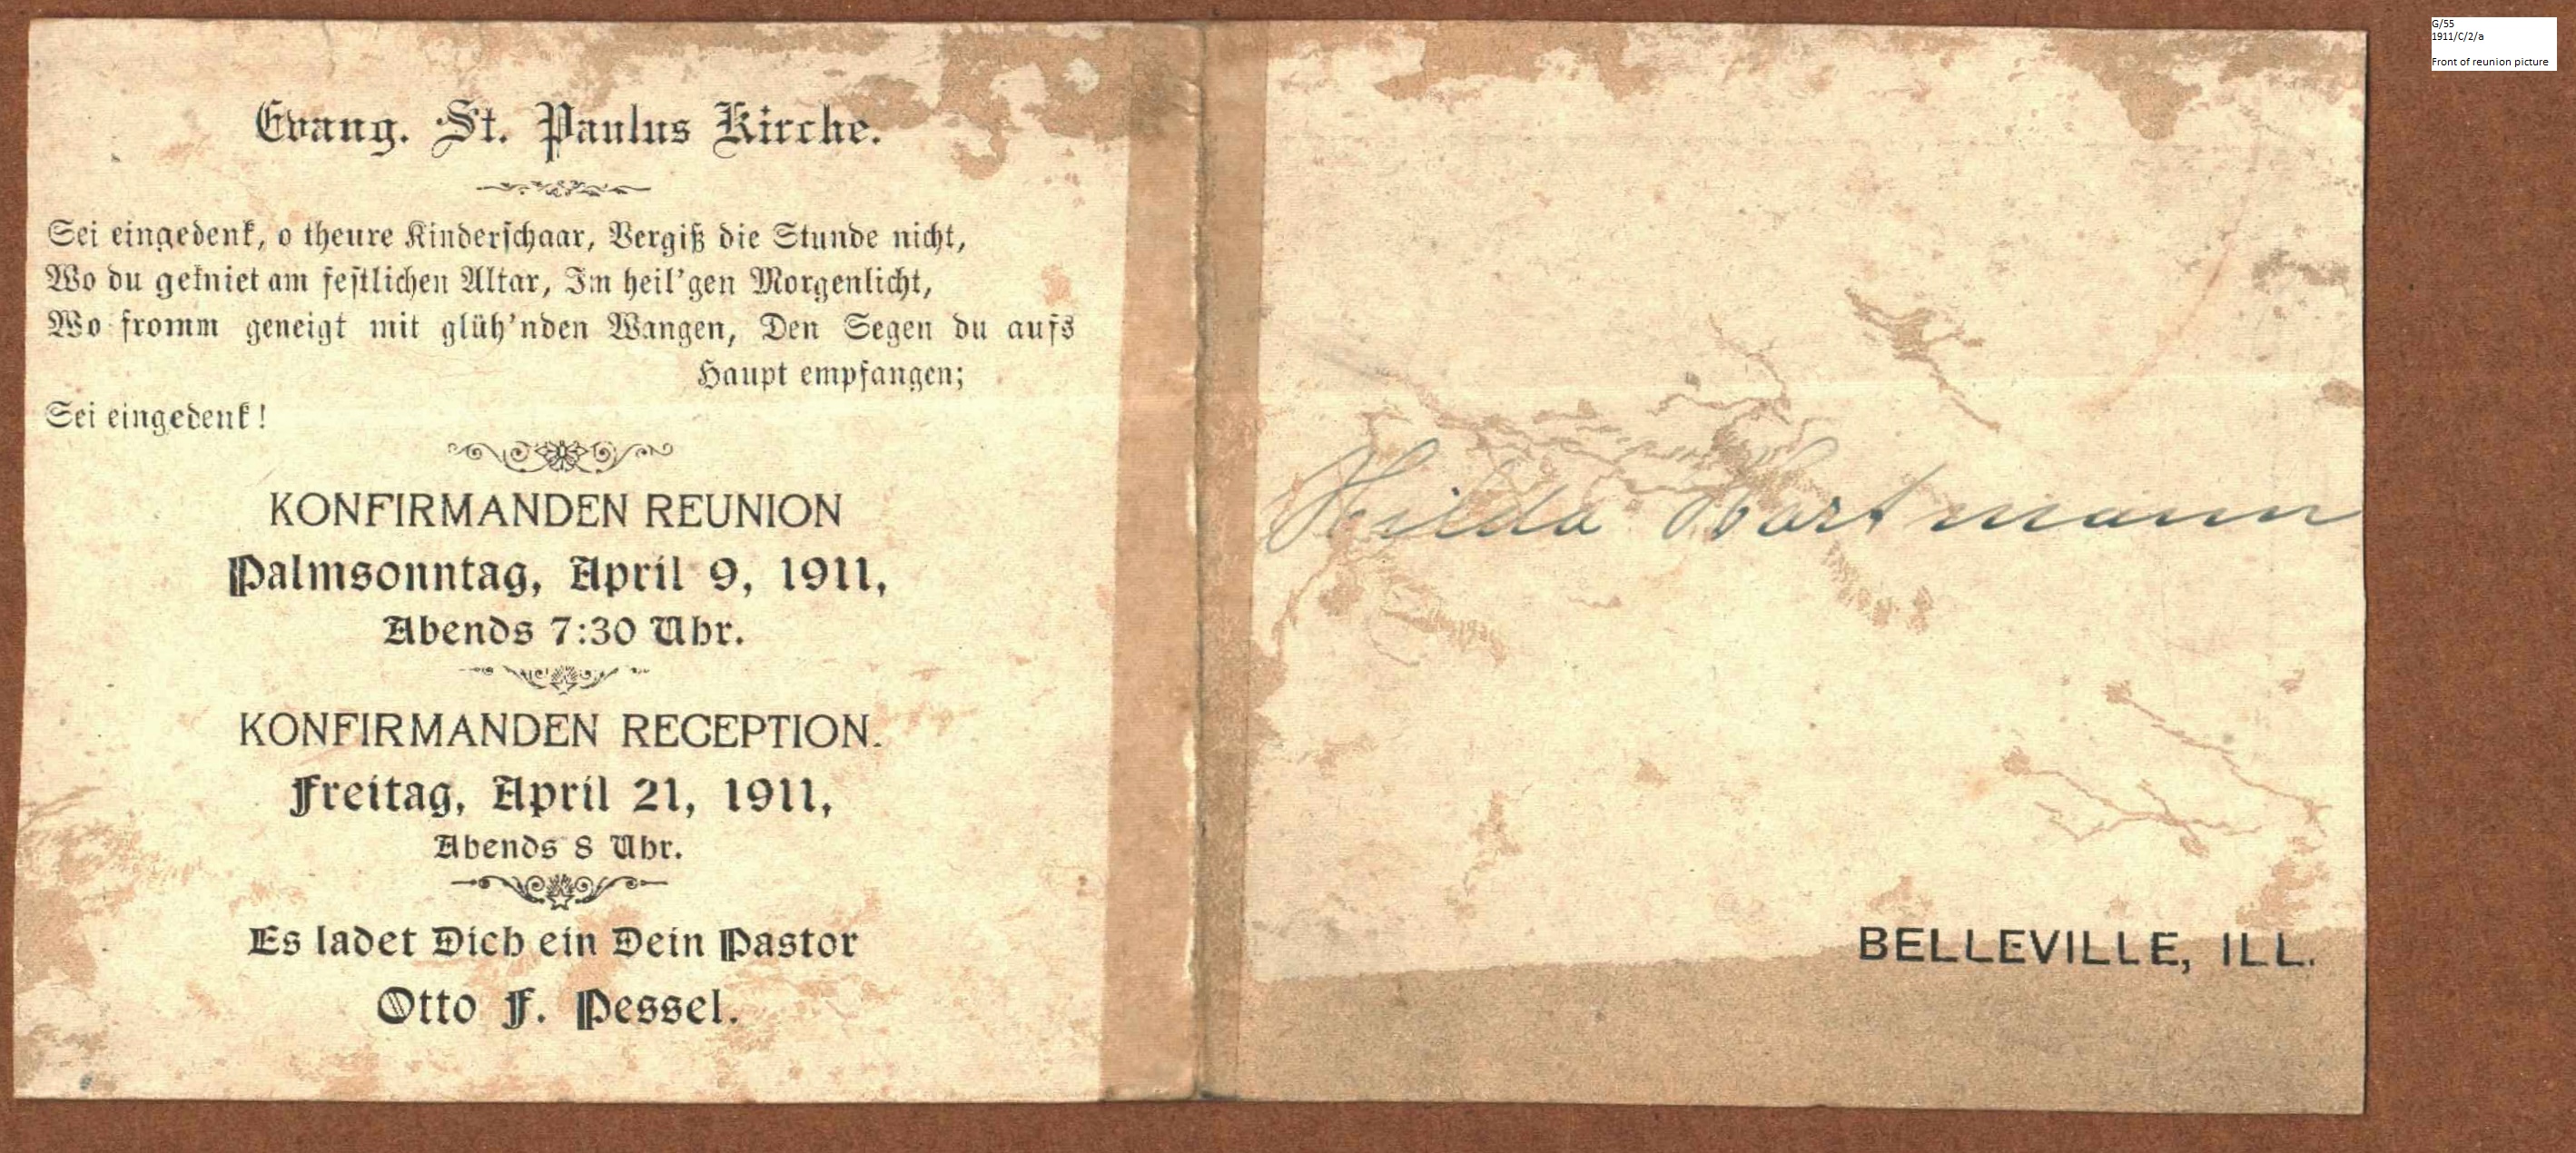 Evang. St. Paulus Kirche.
Sei eingedenk, o theure Kinderschaar, Vergiß die Stunde nicht,
Wo du gekniet am festlichen Altar, Im heil'gen Morgenlicht,
Wo fromm geneigt mit glüh'nden Wangen, Den Segen du aufs
Haupt empfangen;
Sei eingedenk!
KONFIRMANDEN REUNION
Palmsonntag, April 9, 1911,
Abends 7:30 Uhr.
KONFIRMANDEN RECEPTION.
Freitag, April 21, 1911,
Abends 8 Uhr.
Es ladet Dich ein Dein Pastor
Otto F. Pessel.
Hilda Hartmann
BELLEVILLE, ILL.
G/55
1911/C/2/a
Front of reunion picture